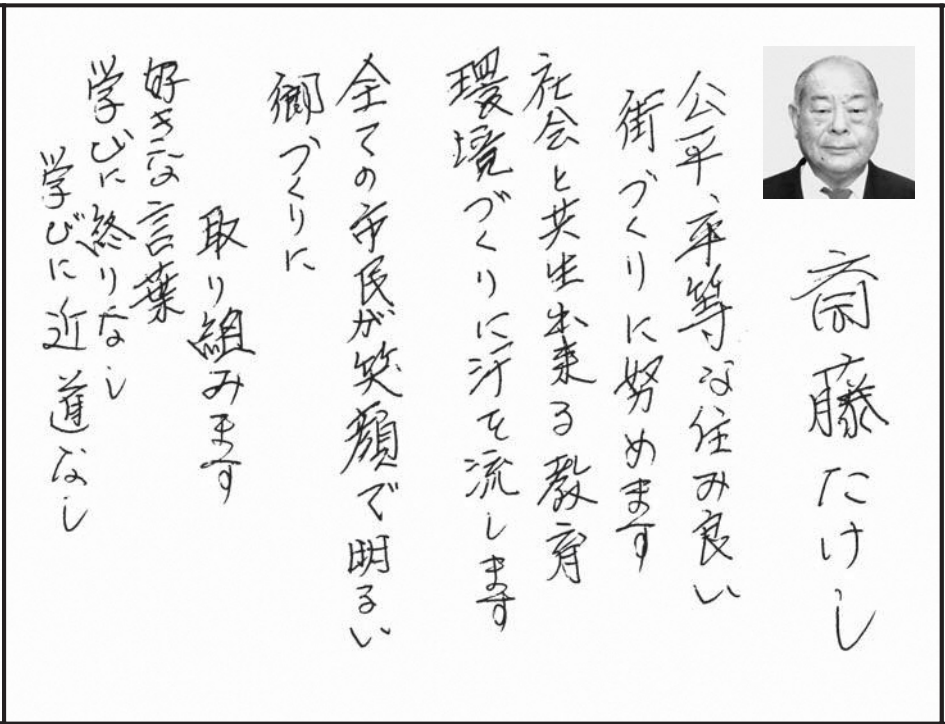 斎藤たけし
公平、平等な住み良い
街づくりに努めます
社会と共生出来る教育
環境づくりに汗を流します
全ての市民が笑顔で明るい
郷づくりに
取り組みます
好きな言葉
学びに終りなし
学びに近道なし